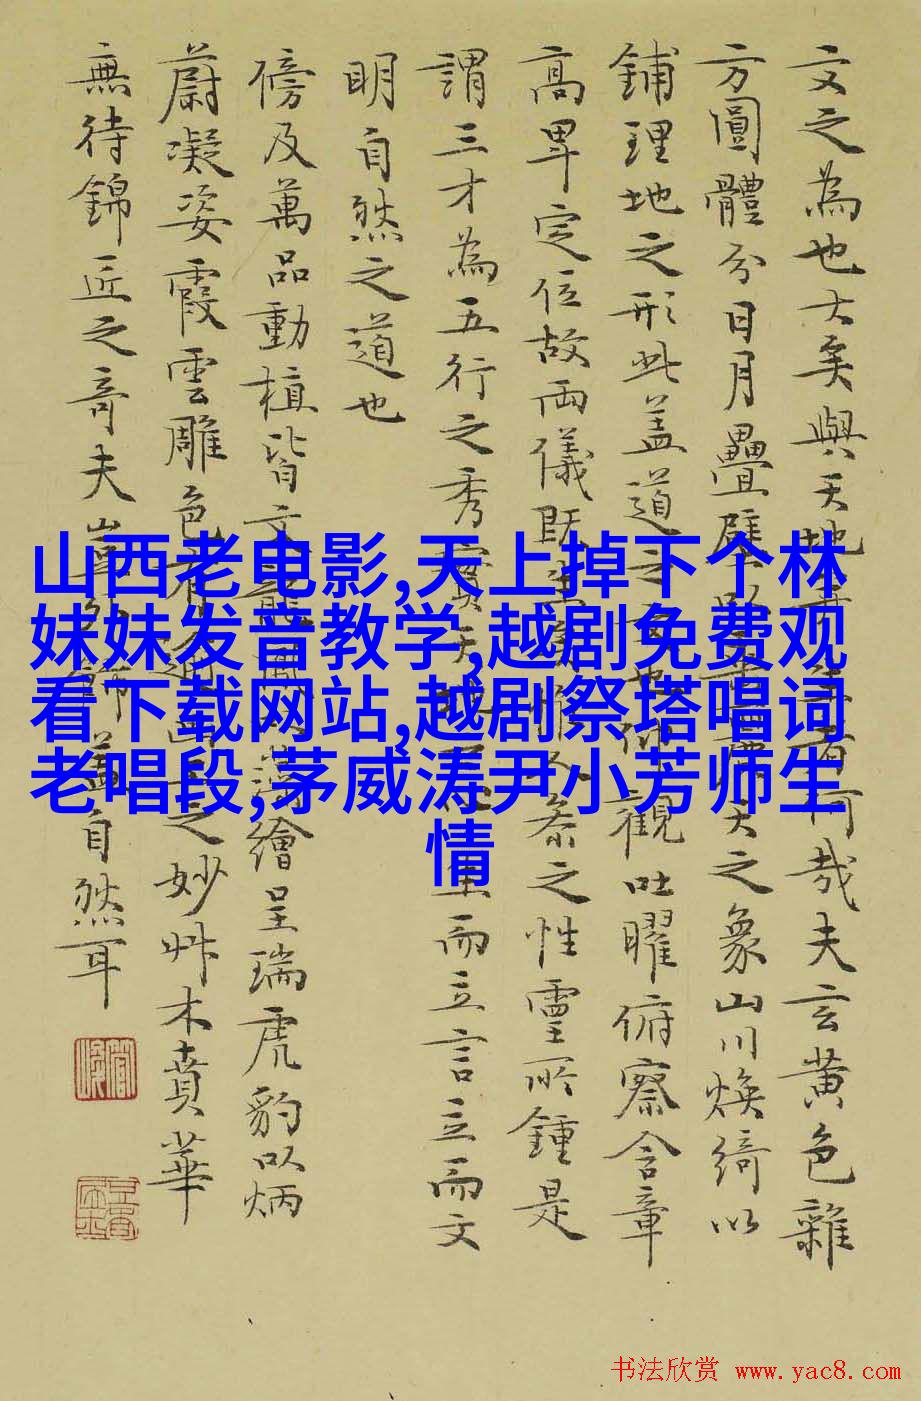 文之為也大矣與天地并生者何哉夫玄黃色雜
方圓體分日月疊璧以垂麗天之象山川煥綺以
鋪理地之形此盖道之文也仰觀吐曜俯察含章
高卑定位故兩儀既生矣惟人叅之性靈所鍾是
謂三才為五行之秀實天地心生而立言立而文
明自然之道也
傍及萬品動植皆文龍鳳以藻繪呈瑞虎豹以炳
蔚凝姿霞雲雕色有踰畫工之妙艸木賁華
無待錦匠之奇夫豈外飾盖自然耳
山西老电影,天上掉下个林
妹妹发音教学,越剧免费观
看下载网站,越剧祭塔唱词
老唱段,茅威涛尹小芳师生
情
书法欣赏 www.yac8.com